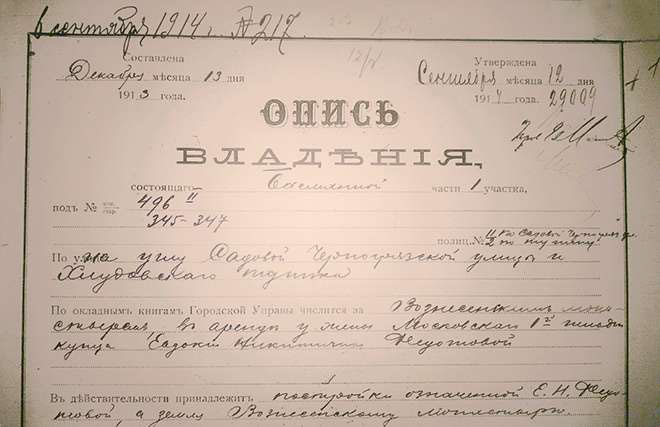 6 сентября 1914 г. № 217.
Составлена
Декабря мѣсяца 13 дня
1913 года.
Утверждена
Сентября мѣсяца 12 дня
1914 года.
29009
ОПИСЬ
ВЛАДѢНІЯ,
состоящаго Басманной части 1 участка,
подъ № 496 II
345-347
полиц. № 11 по Садовой
2 по тупику
По на углу Садовой Черногрязской улицы и
Хлудовскаго тупика
По окладнымъ книгамъ Городской Управы числится за Вознесенскимъ мона-
стыремъ въ арендѣ у жены Московскаго 1й гильдіи
купца Евдокіи Никитичны Федотовой
Въ дѣйствительности принадлежитъ постройки означенной Е. Н. Федо-
товой, а земля Вознесенскому монастырю.